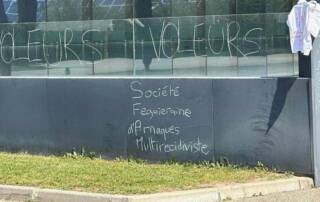 VOLEURS ! VOLEURS
Société
Feguieraine
d'Arnaques
Multirecidiviste